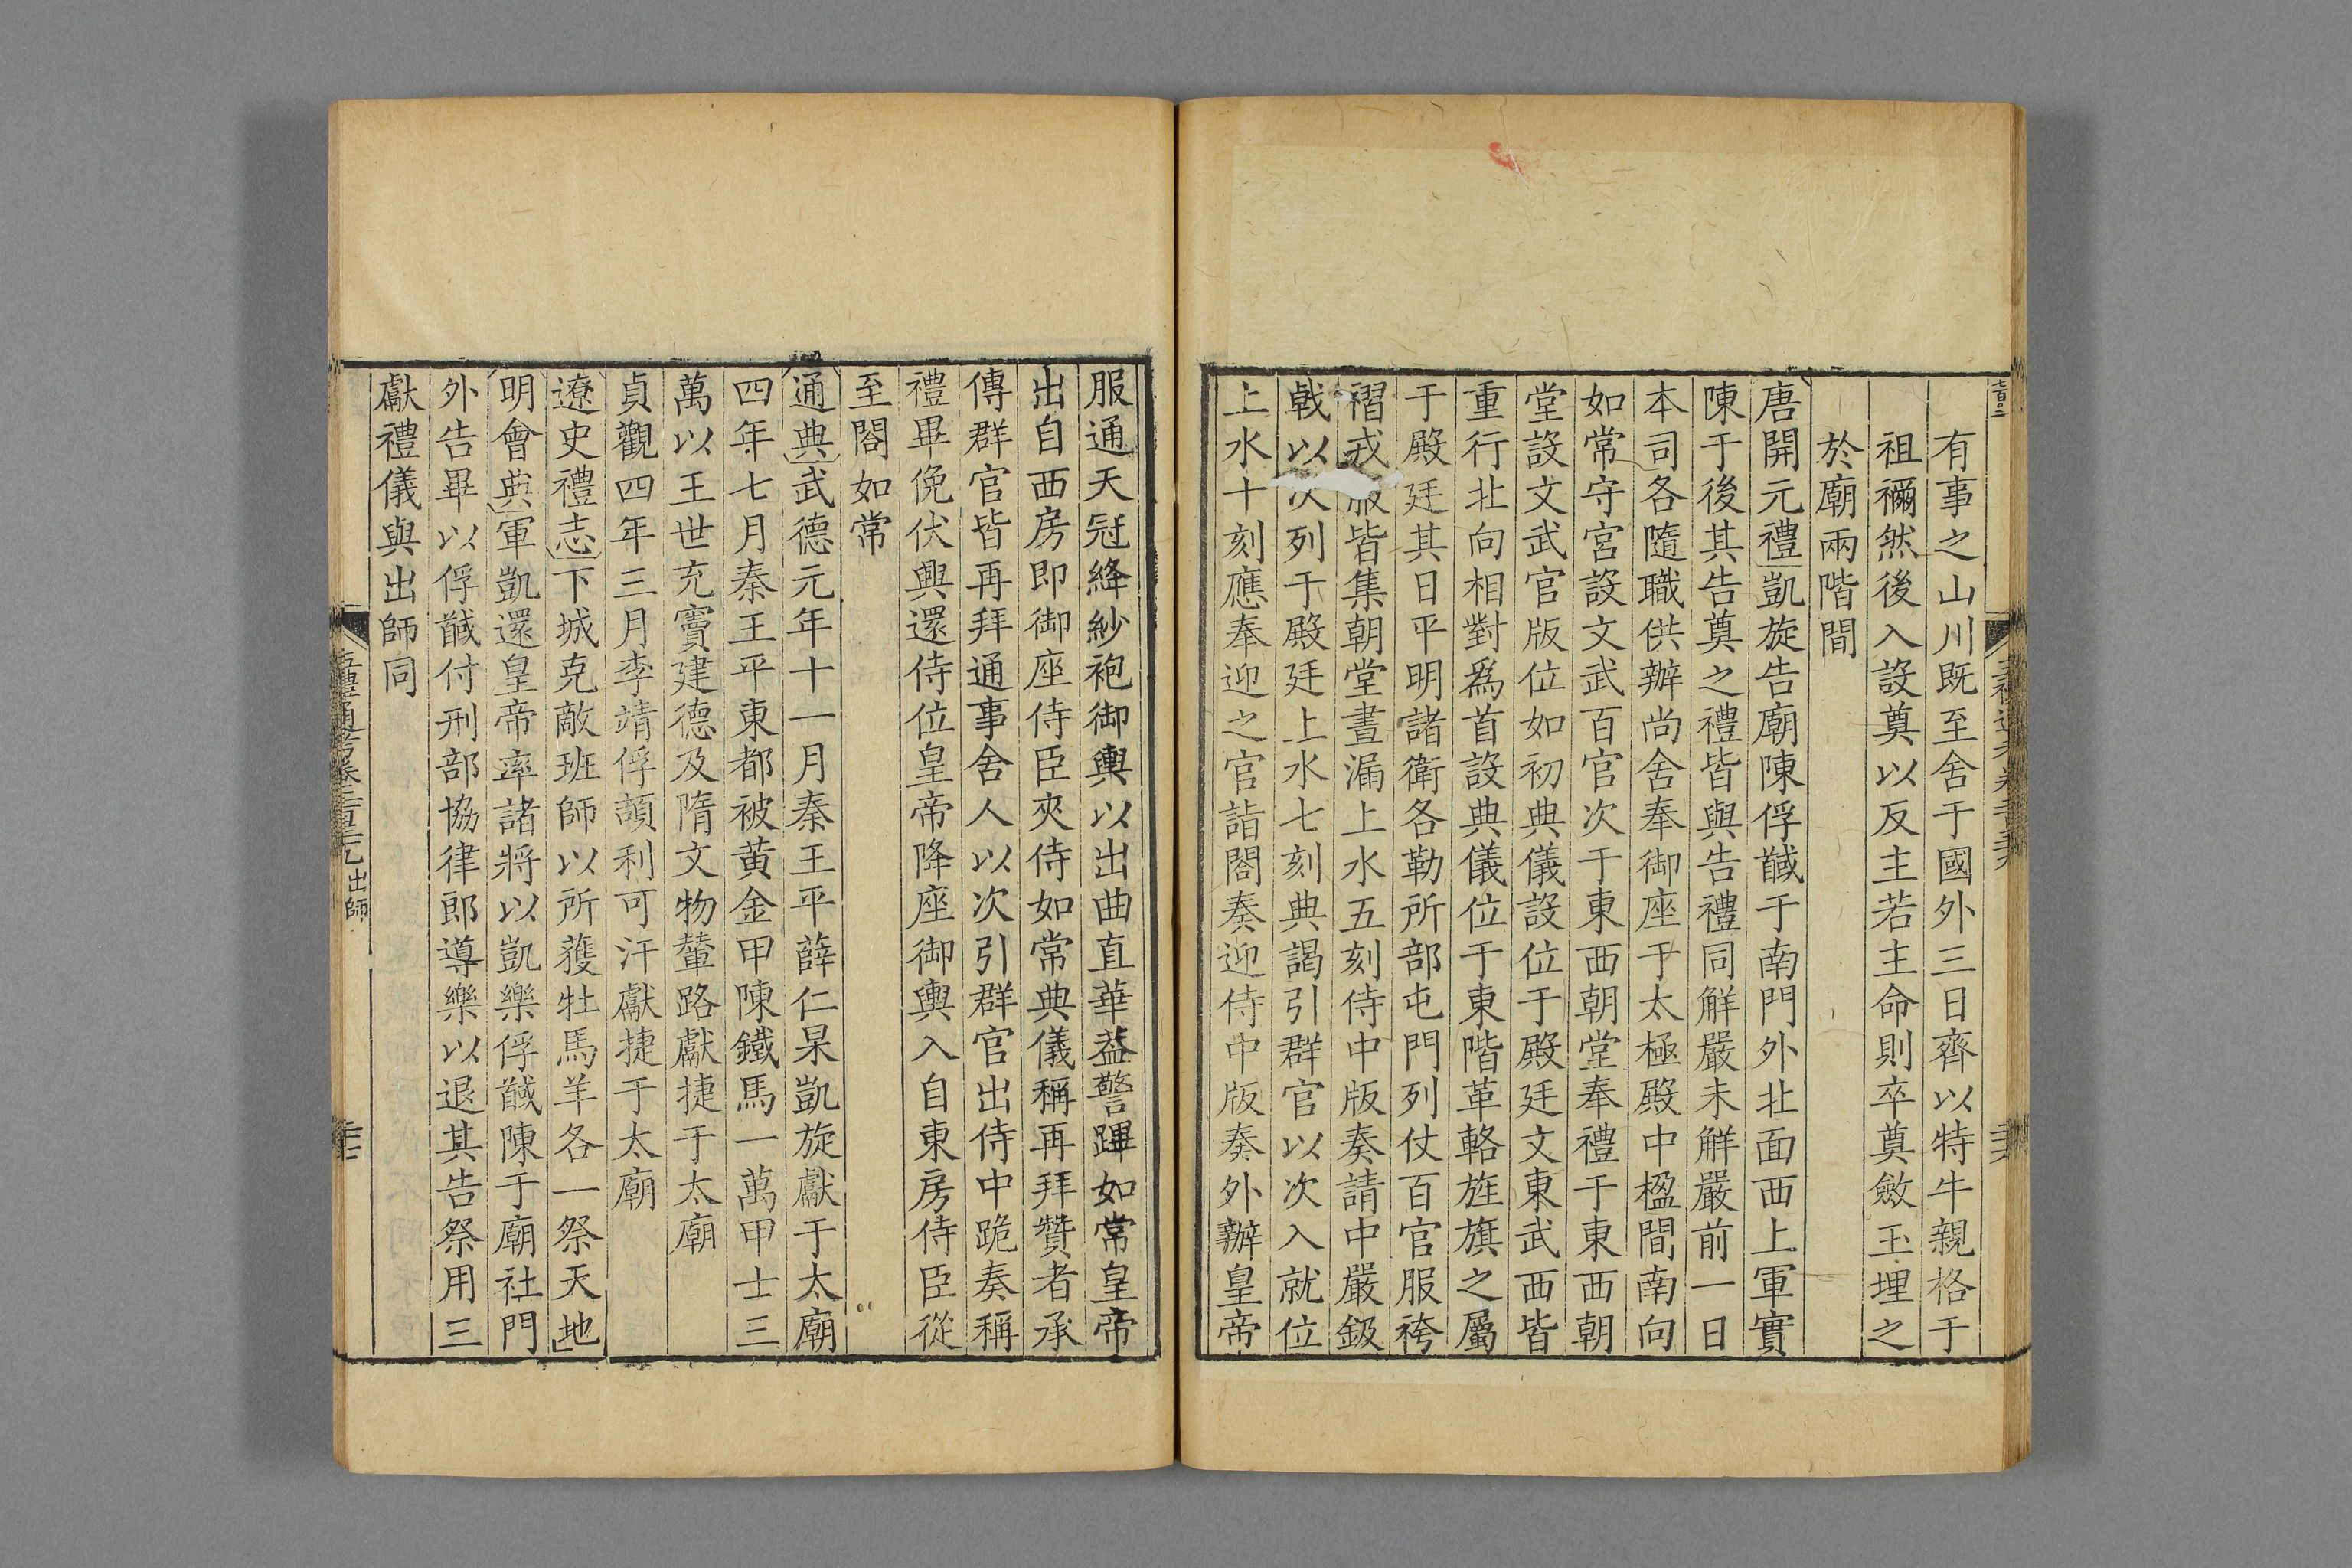 有事之山川既至舍于國外三日齊以特牛親格于
祖禰然後入設奠以反主若主命則卒奠斂玉埋之
於廟兩階間
唐開元禮凱旋告廟陳俘馘于南門外北面西上軍實
陳于後其告奠之禮皆與告禮同解嚴未解嚴前一日
本司各隨職供辦尚舍奉御座于太極殿中楹間南向
如常守宮設文武百官次于東西朝堂奉禮于東西朝
堂設文武官版位如初典儀設位于殿廷文東武西皆
重行北向相對爲首設典儀位于東階革輅旌旗之屬
于殿廷其日平明諸衛各勒所部屯門列仗百官服袴
褶戎服皆集朝堂晝漏上水五刻侍中版奏請中嚴鈒
戟以次列于殿廷上水七刻典謁引群官以次入就位
上水十刻應奉迎之官詣閤奏迎侍中版奏外辦皇帝
服通天冠絳紗袍御輿以出曲直華蓋警蹕如常皇帝
出自西房即御座侍臣夾侍如常典儀稱再拜贊者承
傳群官皆再拜通事舍人以次引群官出侍中跪奏稱
禮畢俛伏興還侍位皇帝降座御輿入自東房侍臣從
至閤如常
通典武德元年十一月秦王平薛仁杲凱旋獻于太廟
四年七月秦王平東都被黃金甲陳鐵馬一萬甲士三
萬以王世充竇建德及隋文物輦路獻捷于太廟
貞觀四年三月李靖俘頡利可汗獻捷于太廟
遼史禮志下城克敵班師以所獲牡馬羊各一祭天地
明會典軍凱還皇帝率諸將以凱樂俘馘陳于廟社門
外告畢以俘馘付刑部協律郎導樂以退其告祭用三
獻禮儀與出師同
五禮通考卷二百三十九 出師